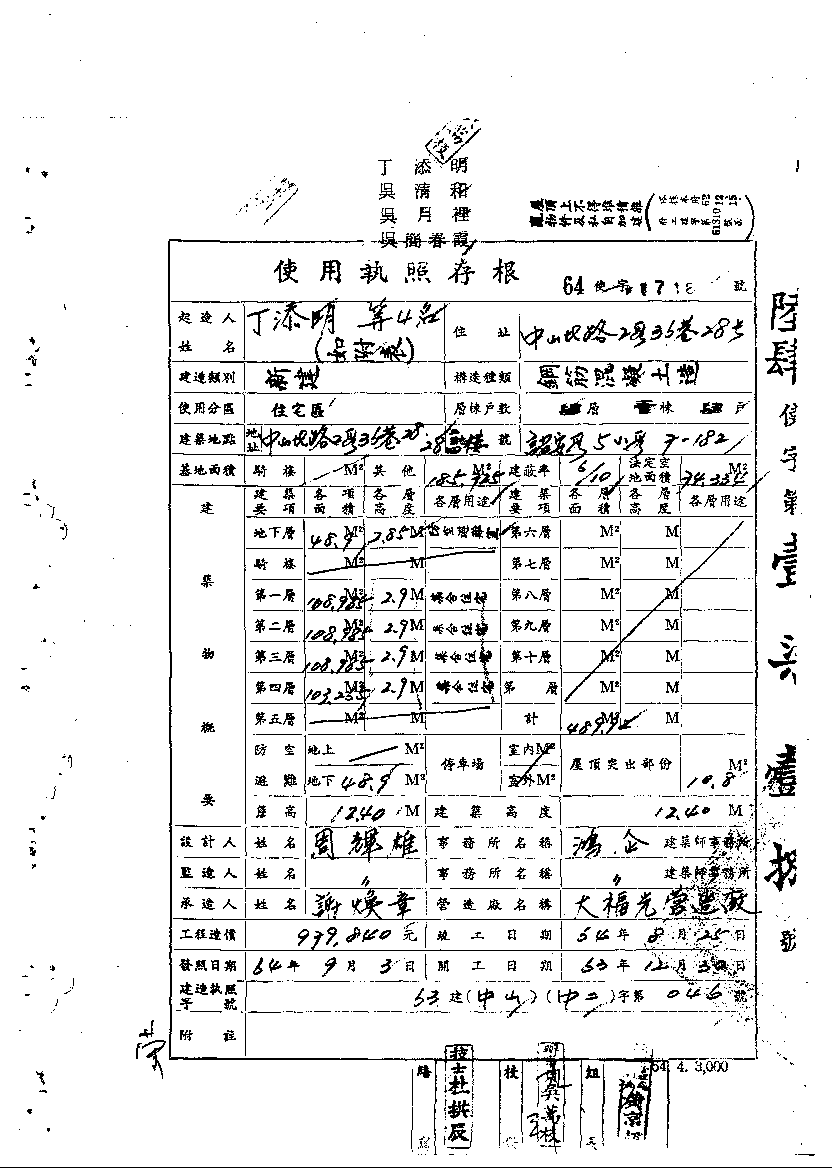 丁添明
吳清和
吳月裡
吳簡春霞
屋頂上不得堆積雜
物件及私自加建
使用執照存根
64 使字 1718 號
起造人姓名 丁添明 等4名 (如附表) 住址 中山北路2段35巷28號
建造類別 新建 構造種類 鋼筋混凝土造
使用分區 住宅區 層棟戶數 層 棟 戶
建築地點 地址 中山北路2段35巷28 號 5小段 7-182
基地面積 騎樓 M² 其他 185.925 M² 建蔽率 6/10 法定空地面積 74.334 M²
建築物概要 建築要項 各項面積 各層高度 各層用途 建築要項 各層面積 各層高度 各層用途
地下層 48.9 M² 2.85 M 第六層 M² M
騎樓 M² M 第七層 M² M
第一層 108.985 M² 2.9 M 集合住宅 第八層 M² M
第二層 108.985 M² 2.9 M 集合住宅 第九層 M² M
第三層 108.985 M² 2.9 M 集合住宅 第十層 M² M
第四層 103.235 M² 2.9 M 集合住宅 第 層 M² M
第五層 M² M 計 M² M
防空避難 地上 M² 停車場 室內 M² 屋頂突出部份 10.8 M²
地下 48.9 M² 室外 M²
簷高 12.40 M 建築高度 12.40 M
設計人 姓名 周輝雄 事務所名稱 鴻企 建築師事務所
監造人 姓名 〃 事務所名稱 〃 建築師事務所
承造人 姓名 謝煥章 營造廠名稱 大福光營造廠
工程造價 939.840 元 竣工日期 64年8月25日
發照日期 64年9月3日 開工日期 63年12月30日
建造執照字號 63建(中山)(中二)字第046號
附註
64. 4. 3,000
技士杜拱辰
校
陸肆使字第壹柒壹捌號